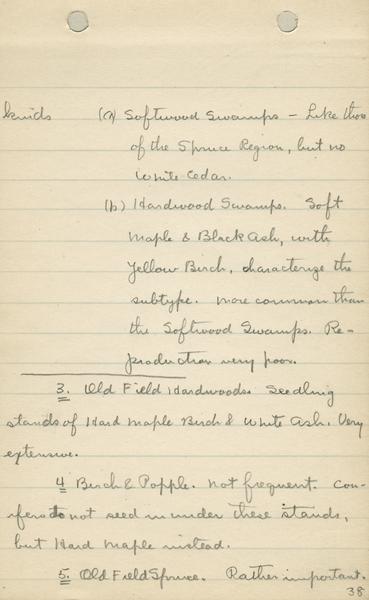 kinds (a) Softwood Swamps – Like those
of the Spruce Region, but no
White Cedar.
(b) Hardwood Swamps. Soft
Maple & Black Ash, with
Yellow Birch, characterize the
subtype. More common than
the Softwood Swamps. Re-
production very poor.
3. Old Field Hardwoods. Seedling
stands of Hard Maple Birch & White Ash. Very
extensive.
4 Birch & Popple. Not frequent. Con-
ifers do not seed in under these stands,
but Hard Maple instead.
5. Old Field Spruce. Rather important.
38